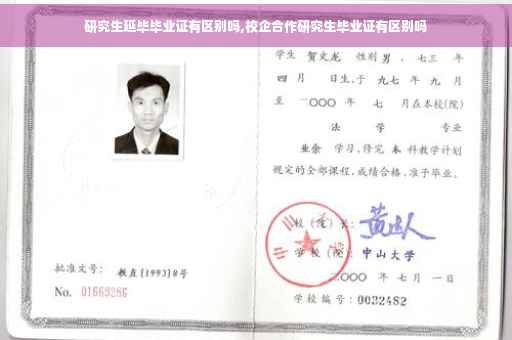 研究生延毕毕业证有区别吗,校企合作研究生毕业证有区别吗
学生 贺文龙 性别 男 、七三 年
四 月 日生,于 九七 年 九 月
至 二〇〇〇 年 七 月在本校(院)
法 学 专业
业余 学习,修完 本 科教学计划
规定的全部课程,成绩合格,准予毕业。
校(院)长:
学校(院): 中山大学
二〇〇〇 年 七 月 一 日
学校编号: 0032482
批准文号: 教直[1993]8号
No. 01669286